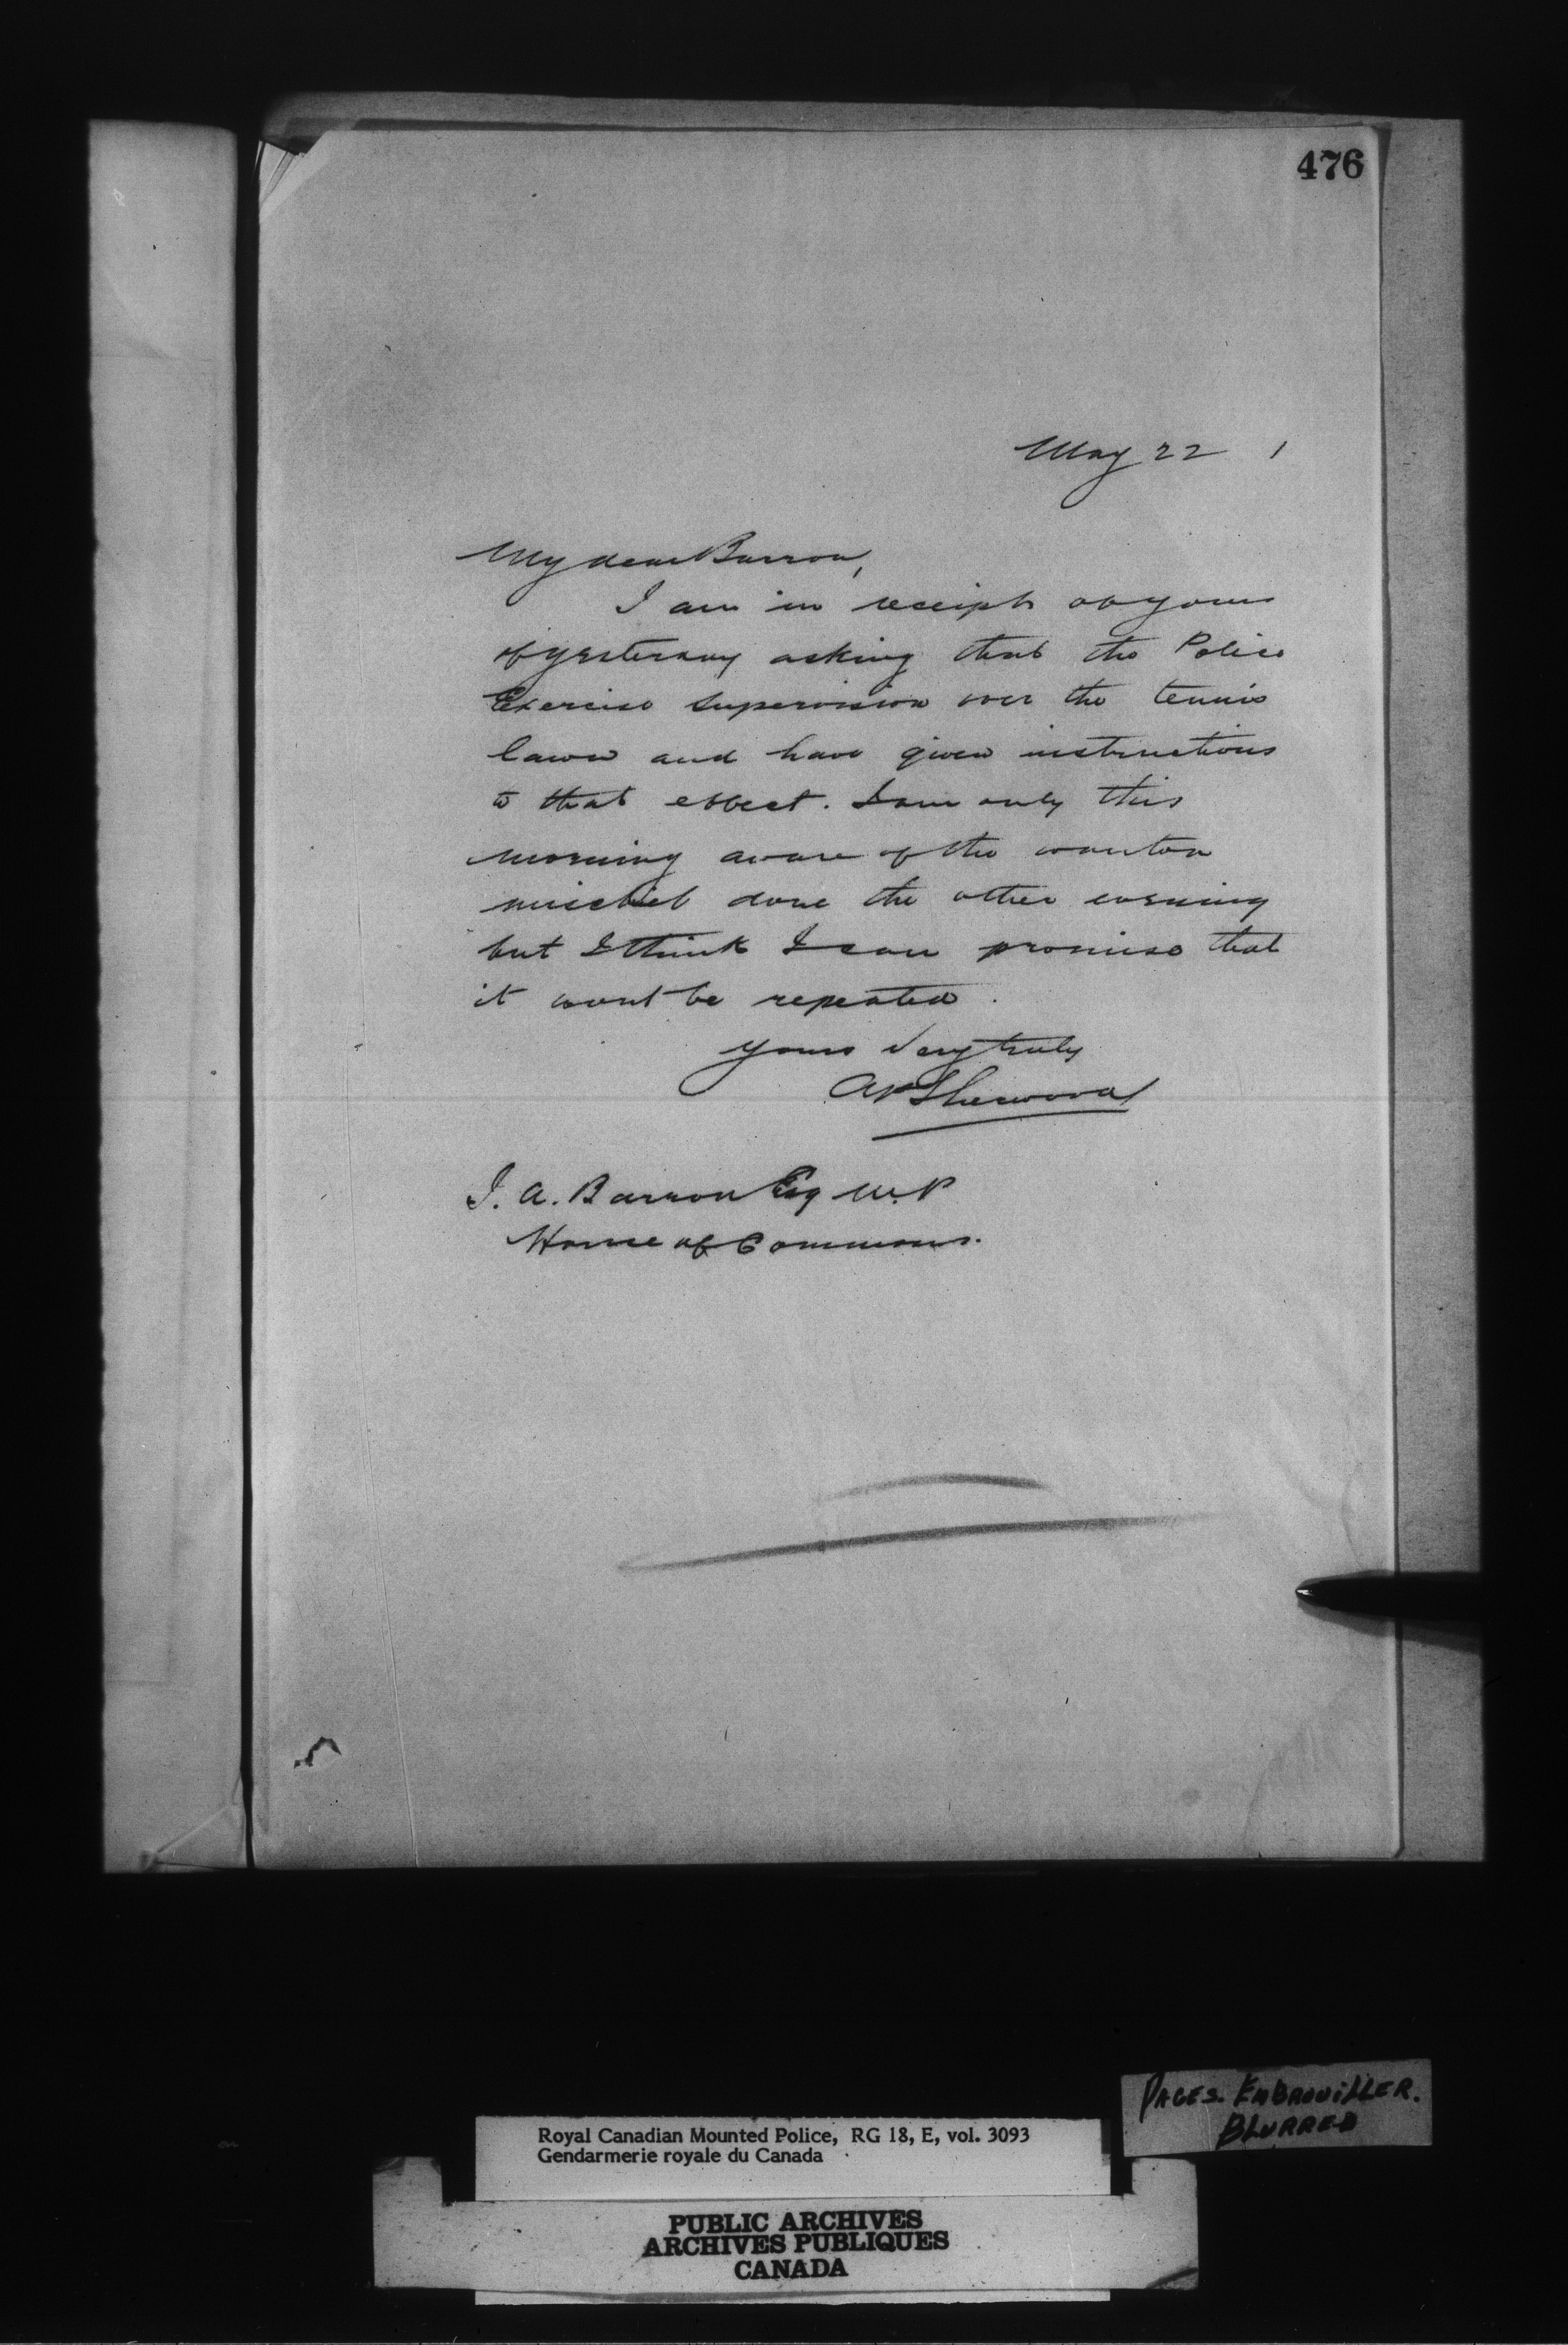 476
May 22 1
My dear Barron,
I am in receipt of yours
of yesterday asking that the Police
Exercise supervision over the tennis
lawn and have given instructions
to that effect. I am only this
morning aware of the wanton
mischief done the other evening
but I think I can promise that
it wont be repeated.
Yours very truly
AP Sherwood
J. A. Barron Esq M.P
House of Commons.
PAGES. EMBROUILLER.
BLURRED
Royal Canadian Mounted Police, RG 18, E, vol. 3093
Gendarmerie royale du Canada
PUBLIC ARCHIVES
ARCHIVES PUBLIQUES
CANADA